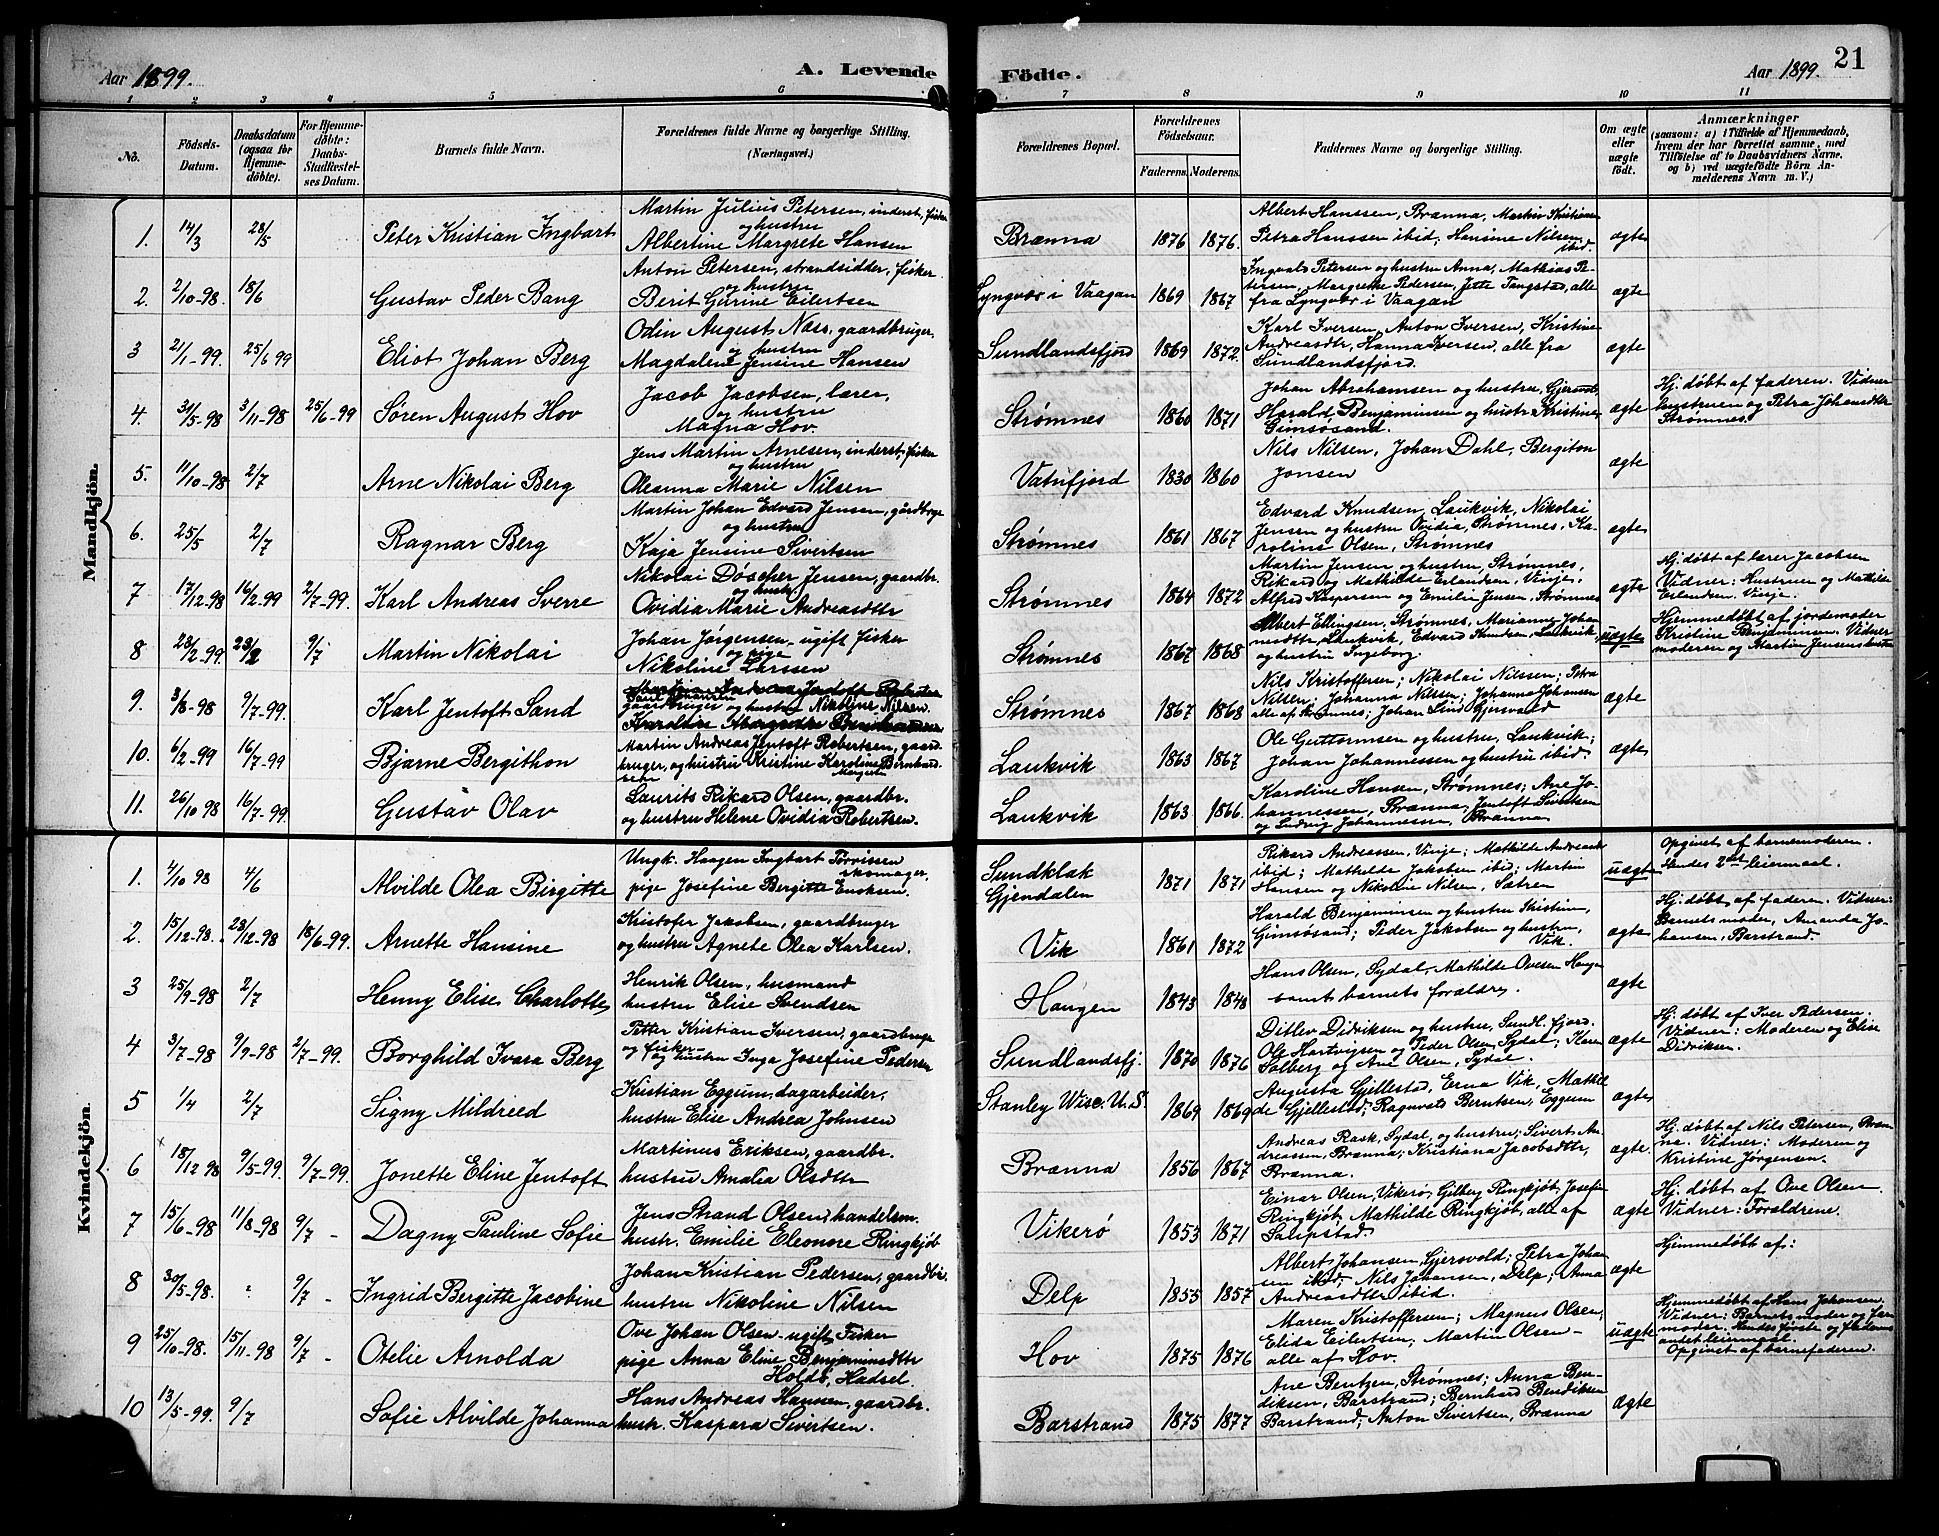 Aar 1899.
A. Levende
Födte.
Aar 1899.
21
1 2 3 4 5 6 7 8 9 10 11
No.
Födsels-Datum.
Daabsdatum (ogsaa for Hjemme-döbte).
For Hjemme-döbte: Daabs-Stadfæstel-ses Datum.
Barnets fulde Navn.
Forældrenes fulde Navne og borgerlige Stilling.
(Næringsvei.)
Forældrenes Bopæl.
Forældrenes Födselsaar.
Faderens. Moderens.
Faddernes Navne og borgerlige Stilling.
Om ægte eller uægte födt.
Anmærkninger
(saasom: a) i Tilfælde af Hjemmedaab,
hvem der har forrettet samme, med
Tilföielse af to Daabsvidners Navne.
og b) ved uægtefödte Börn An-
melderens Navn m. V.)
Mandkjön.
1. 14/3 28/5 Peter Kristian Ingbart
Martin Julius Petersen, inderst, fisker
og hustru
Albertine Margrete Hansen
Brænna 1876 1876.
Albert Hanssen, Brænna, Martin Kristiansen
Petra Hanssen ibid; Hansine Nilsen,
ibid.
ægte
2. 2/10-98. 18/6 Gustav Peder Bang
Anton Petersen, strandsidder, fisker
og hustru
Berit Gurine Eilertsen
Lyngvær i Vaagan 1869 1867
Ingvald Petersen og hustru Anna, Mathias Pe-
tersen, Margrethe Pedersen, Jette Tangstad, alle
fra Lyngvær i Vaagan
ægte
3 21/1-99. 25/6 99 Eliot Johan Berg
Odin August Næss, gaardbruger
og hustru
Magdalene Jensine Hansen
Sundlandsfjord 1869 1872.
Karl Iversen, Anton Iversen, Kristine
Andreasdtr, Hanna Iversen, alle fra
Sundlandsfjord.
ægte
4. 31/5-98 3/11-98 25/6-99 Søren August Hov
Jacob Jacobsen, lærer,
og hustru
Magna Hov.
Strømnes 1860 1871
Johan Abrahamsen og hustru, Gjersvold
Harald Benjaminsen og hustr Kristine
Gimsøsand.
ægte
Hj. døbt af faderen. Vidner
hustruen og Petra Johansdtr
Strømnes.
5. 11/10-98 2/7 Arne Nikolai Berg
Jens Martin Arnesen, inderst, fisker
og hustru
Oleanna Marie Nilsen
Vatnfjord 1830 1860
Nils Nilsen, Johan Dahl, Bergiton
Jonsen
ægte
6. 25/5 2/7 Ragnar Berg
Martin Johan Edvard Jensen, gårdbrge
og hustru
Kaja Jensine Sivertsen
Strømnes 1861 1867
Edvard Knudsen, Laukvik, Nikolai
Jensen og hustru Ovidia, Strømnes, Ka-
roline Olsen, Strømnes
ægte
7 17/12-98 16/2-99 2/7-99. Karl Andreas Sverre
Nikolai Døscher Jensen, gaardbr.
og hustr.
Ovidia Marie Andreasdtr
Strømnes 1864 1872
Martin Jensen og hustru, Strømnes,
Rikard og Mathilde Erlandsen, Vinje,
Alfred Kaspersen og Emilie Jensen, Strømnes
ægte
Hj. døbt af lærer Jacobsen
Vidner: Hustruen og Mathilde
Erlandsen. Vinje.
8 23/2-99. 23/2 9/7 Martin Nikolai
Johan Jørgensen - ugift fisker
og pige
Nikoline Larssen
Strømnes 1867 1868
Albert Ellingsen, Strømnes, Marianne Johan
nesdtr, Laukvik, Edvard Knudsen, Laukvik,
og hustru Ingeborg.
uægte
Hjemmedøbt af jordemoder
Kristine Benjaminsen. Vidner
moderen og Martin Jensens hustru
9. 3/8-98 9/7-99. Karl Jentoft Sand
gaardbruger og hustru Nikoline Nilsen.
Strømnes 1867 1868
Nils Kristoffersen; Nikolai Nilsen; Petra
Nilsen, Johanna Nilsen; Johanna Johansen
alle af Strømnes; Johan Lind Gjersvold
ægte
10. 6/2-99 16/7-99 Bjarne Bergithon
Martin Andreas Jentoft Robertsen, gaard-
bruger, og hustru Kristine Karoline Bernhard-
sen Margrete
Laukvik 1863 1867
Ole Guttormsen og hustru, Laukvik;
Johan Johannessen og hustru ibid.
ægte
11. 26/10 98 16/7-99. Gustav Olav
Laurits Rikard Olsen, gaardbr.
og hustru Helene Ovidia Robertsen.
Laukvik 1863 1866.
Karoline Hansen, Strømnes; Ane Jo-
hannessen, Brænna; Jentoft Sivertsen
og Ludvig Johannessen, Brænna
Kvindekjön.
1. 4/10 98 4/6 Alvilde Olea Birgitte
Ungk. Haagen Ingbart Torrissen
skomager,
pige Josefine Bergitte Eriksen.
Sundklak
Gjendalen
1871 1871
Rikard Andreassen, Vinje; Mathilde Andreassen
ibid; Mathilde Jakobsen ibid; Martin
Hansen og Nikolai Nilsen, Sætren
uægte
Opgivet af barnemoderen.
Hendes 2det leiermaal.
2. 15/12-98. 28/12-98 18/6-99. Arnette Hansine
Kristofer Jakobsen, gaardbruger
og hustru Agnete Olea Karlsen.
Vik 1861 1872
Harald Benjaminsen og hustru Kristine,
Gimsøsand; Peder Jakobsen og hustru,
Vik.
ægte
Hj. døbt af faderen. Vidner:
Barnets moder, Amanda Jo-
hansen, Barstrand.
3 25/9-98 2/7 Henny Elise Charlotte
Henrik Olsen, husmand
hustru Elise Svendsen
Haugen 1843 1848
Hans Olsen, Sydal, Mathilde Ovesen Haugen
samt barnets forældre.
ægte
4 3/7-98 9/9-98 2/7-99. Borghild Ivara Berg
Petter Kristian Iversen, gaardbruge
og fisker
og hustru Inga Josefine Pedersen
Sundlandsfj. 1870 1876
Ditlev Didriksen og hustru, Sundl.fjord.
Ole Hartvigsen og Peder Olsen, Sydal; Karen
Solberg og Ane Olsen, Sydal.
ægte
Hj. døbt af Iver Pedersen.
Vidner: Moderen og Elise
Didriksen.
5 1/4 2/7 Signy Mildreed
Kristian Eggum, dagarbeider,
hustru Elise Andrea Johnsen
Stanley Wisc. U.S. 1869 1869
Augusta Gjellestad, Erna Vik, Mathil
de Gjellestad; Ragnvats Berntsen, Eggum
ægte
6 18/12 98 9/5-99. 9/7-99. Jonette Eline Jentoft
Martinus Eriksen, gaardbr.
hustru Amalia Olsdtr
Brænna 1856 1867
Andreas Rask, Sydal, og hustru; Sivert An-
dreassen, Brænna; Kristiana Jacobsdtr,
Brænna.
ægte.
Hj. døbt af Nils Petersen, Bræn-
na. Vidner: Moderen og
Kristine Jørgensen.
7 15/6-98 11/8-98 9/7 - Dagny Pauline Sofie
Jens Strand Olsen, handelsm.
hustr. Emilie Eleonore Ringkjøb
Vikerø 1853 1871
Einar Olsen, Vikerø, Gilberg Ringkjøb, Josefine
Ringkjøb, Mathilde Ringkjøb, alle af
ægte
Hj. døbt af Ove Olsen
Vidner: Forældrene.
8 30/5-98. " 9/7 - Ingrid Bergitte Jacobine
Johan Kristian Pedersen, gaardbr.
hustru Nikoline Nilsen
Delp 1855 1857
Albert Johansen, Gjersvold; Petra Johan
sen ibid; Nils Johansen, Delp; Anna
Andreasdtr ibid.
ægte
Hjemmedøbt af:
9 25/10-98. 15/11-98 9/7 - Otelie Arnolda
Ove Johan Olsen - ugift Fisker
pige Anna Eline Benjaminsdtr
Holdø, Hadsel.
Hov 1875 1876
Maren Kristoffersen; Magnus Olsen,
Elida Eilertsen; Martin Olsen -
alle af Hov.
uægte
Hjemmedøbt af Hans Johansen.
Vidner: Barnets moder og far-
moder. Hendes første og faderens
andet leiermaal.
Opgivet af barnefaderen.
10 13/5-99. 9/7 Sofie Alvilde Johanna
Hans Andreas Hansen, gaardbr.
hustr. Kaspara Sivertsen.
Barstrand 1875 1877
Ane Bentzen, Strømnes; Anna Ben-
diksen, Barstrand; Bernhard Bendiksen
Barstrand; Anton Sivertsen, Brænna
ægte